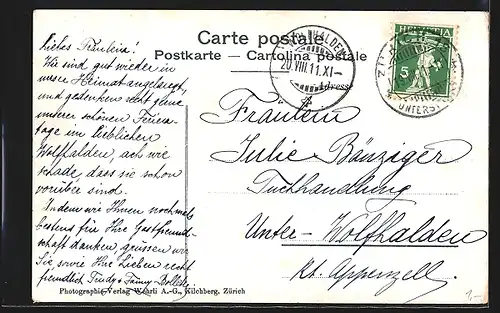 Carte postale
Postkarte – Cartolina postale
Adresse
WOLFHALDEN
20.VIII.11.XI–
HELVETIA
5
UNTERST
liebes Fräulein!
Wir sind gut wieder in
unserer Heimat angelangt,
und gedenken recht gerne
unserer schönen Ferien-
tage im lieblichen
Wolfhalden, ach wie
schade, dass sie schon
vorüber sind.
Indem wir Ihnen nochmals
bestens für Ihre Gastfreund-
schaft danken, grüssen wir
Sie sowie Ihre Lieben recht
freundlich Trudy & Fanny
Fräulein
Julie Bänziger
Tuchhandlung
Unter-Wolfhalden
Kt. Appenzell.
Photographie-Verlag Wehrli A.-G., Kilchberg, Zürich
1,-